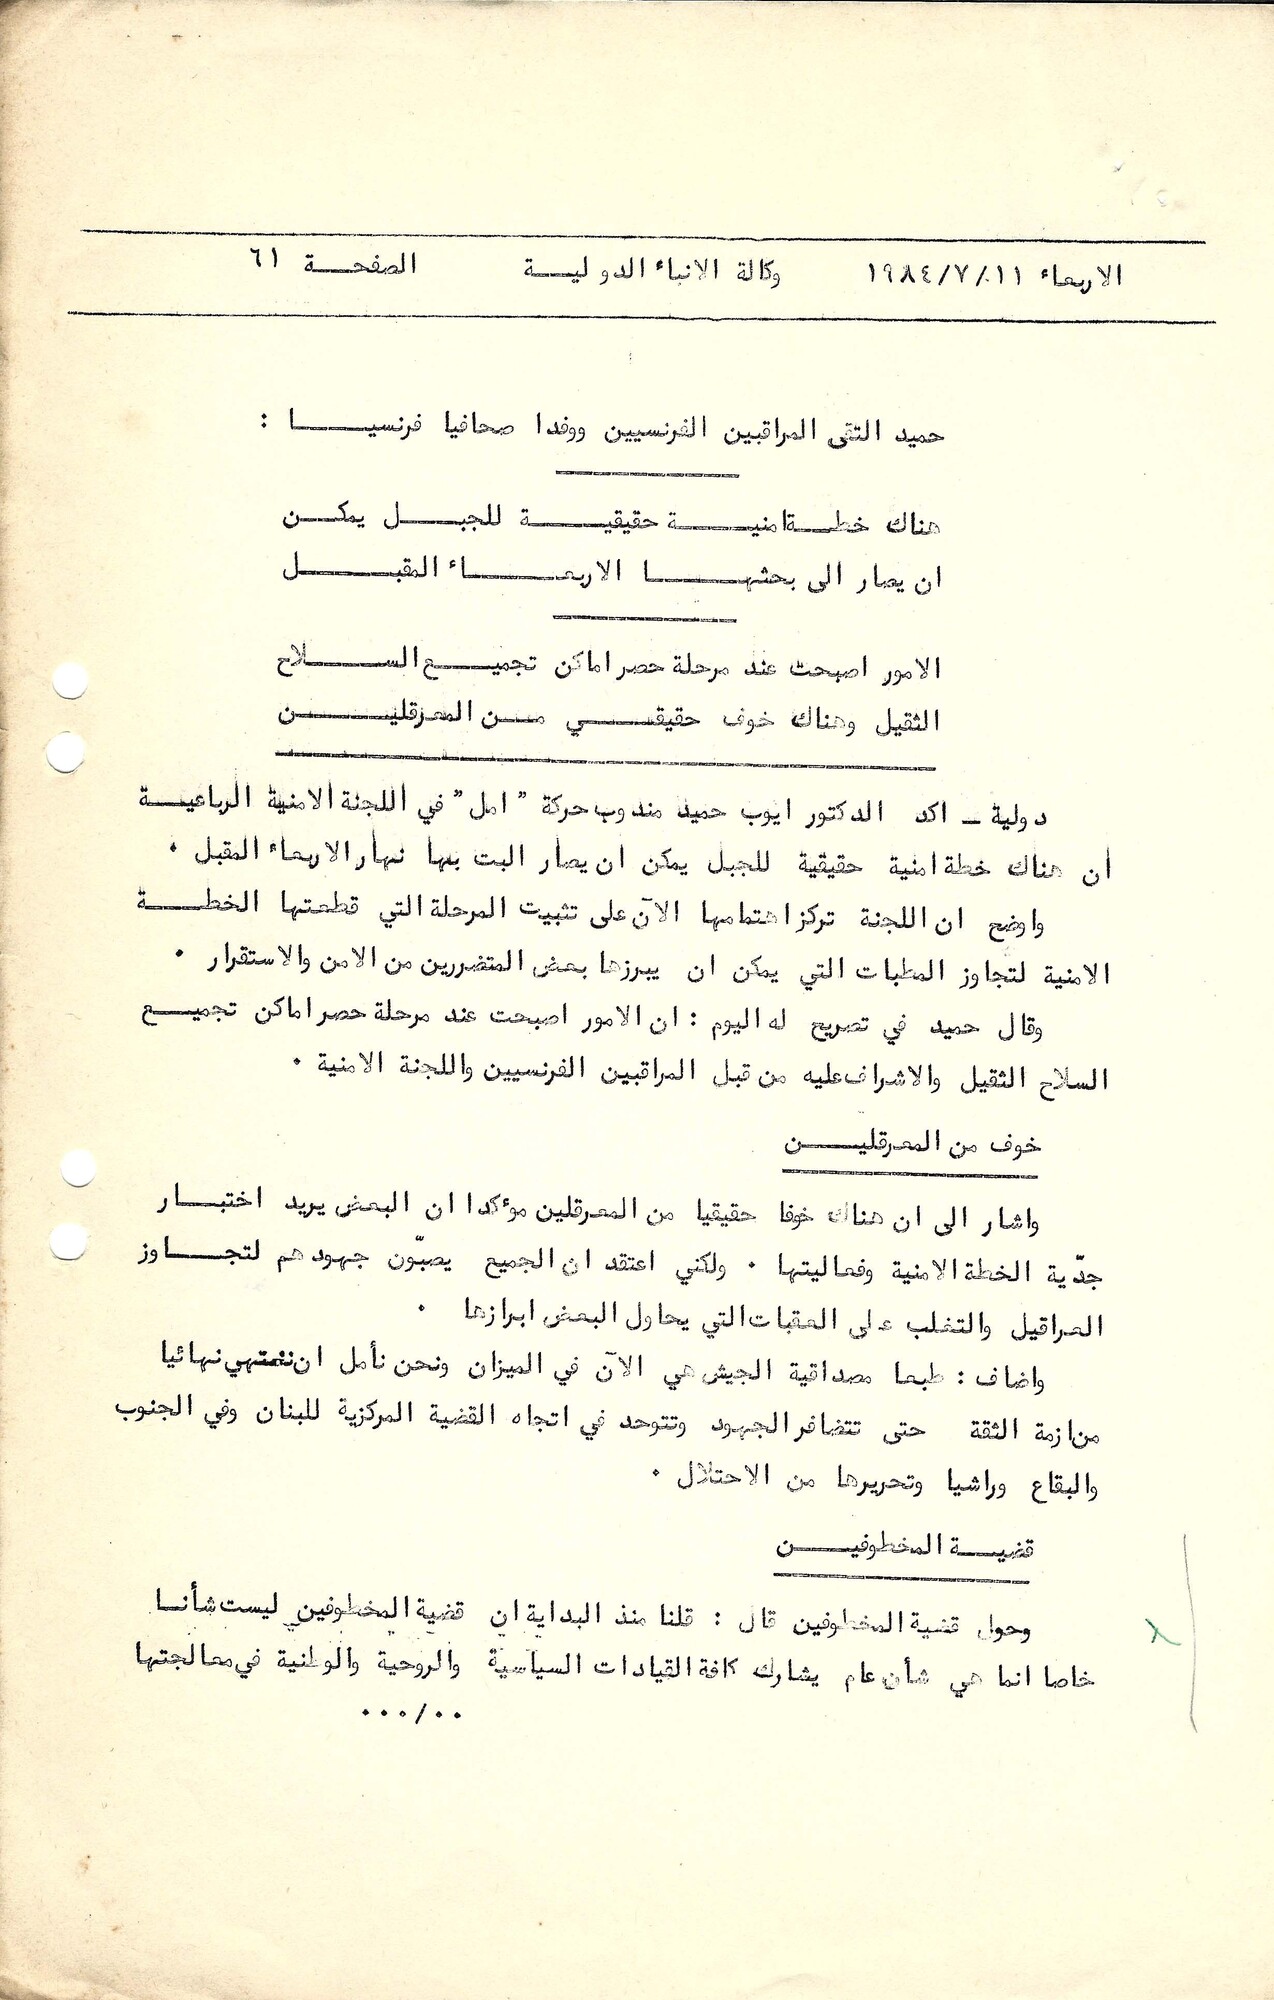 الاربعاء ١٩٨٤/٧/١١ وكالة الانباء الدولية الصفحة ٦١
حميد التقى المراقبين الفرنسيين ووفدا صحافيا فرنسيا :
هناك خطة امنية حقيقية للجبل يمكن
ان يصار الى بحثها الاربعاء المقبل
الامور اصبحت عند مرحلة حصر اماكن تجميع السلاح
الثقيل وهناك خوف حقيقي من المعرقلين
دولية - اكد الدكتور ايوب حميد مندوب حركة " امل " في اللجنة الامنية الرباعية
ان هناك خطة امنية حقيقية للجبل يمكن ان يصار البت بها نهار الاربعاء المقبل ٠
واوضح ان اللجنة تركز اهتمامها الآن على تثبيت المرحلة التي قطعتها الخطة
الامنية لتجاوز المطبات التي يمكن ان يبرزها بعض المتضررين من الامن والاستقرار ٠
وقال حميد في تصريح له اليوم : ان الامور اصبحت عند مرحلة حصر اماكن تجميع
السلاح الثقيل والاشراف عليه من قبل المراقبين الفرنسيين واللجنة الامنية ٠
خوف من المعرقلين
واشار الى ان هناك خوفا حقيقيا من المعرقلين مؤكدا ان البعض يريد اختبار
جدّية الخطة الامنية وفعاليتها ٠ ولكني اعتقد ان الجميع يصبّون جهودهم لتجاوز
العراقيل والتغلب على العقبات التي يحاول البعض ابرازها ٠
واضاف : طبعا مصداقية الجيش هي الآن في الميزان ونحن نأمل ان ننتهي نهائيا
من ازمة الثقة حتى تتضافر الجهود وتتوحد في اتجاه القضية المركزية للبنان وفي الجنوب
والبقاع وراشيا وتحريرها من الاحتلال ٠
قضية المخطوفين
وحول قضية المخطوفين قال : قلنا منذ البداية ان قضية المخطوفين ليست شأنا
خاصا انما هي شأن عام يشارك كافة القيادات السياسية والروحية والوطنية في معالجتها
٠٠/٠٠٠